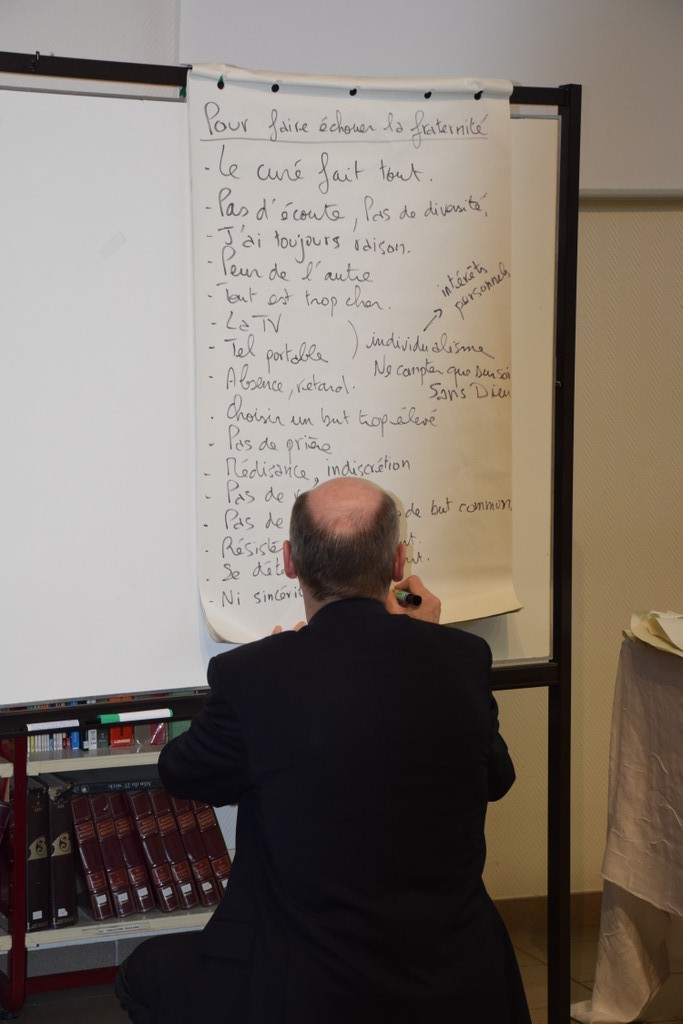 Pour faire échouer la fraternité
- Le curé fait tout.
- Pas d'écoute, Pas de diversité.
- J'ai toujours raison.
- Peur de l'autre
- Tout est trop cher.
- La TV
- Tel portable
) individualisme
→ intérêts personnels
Ne compter que sur soi
Sans Dieu
- Absence, retard.
- Choisir un but trop élevé
- Pas de prière
- Médisance, indiscrétion
- Pas de
- Pas de de but commun
- Résiste
- Se
- Ni